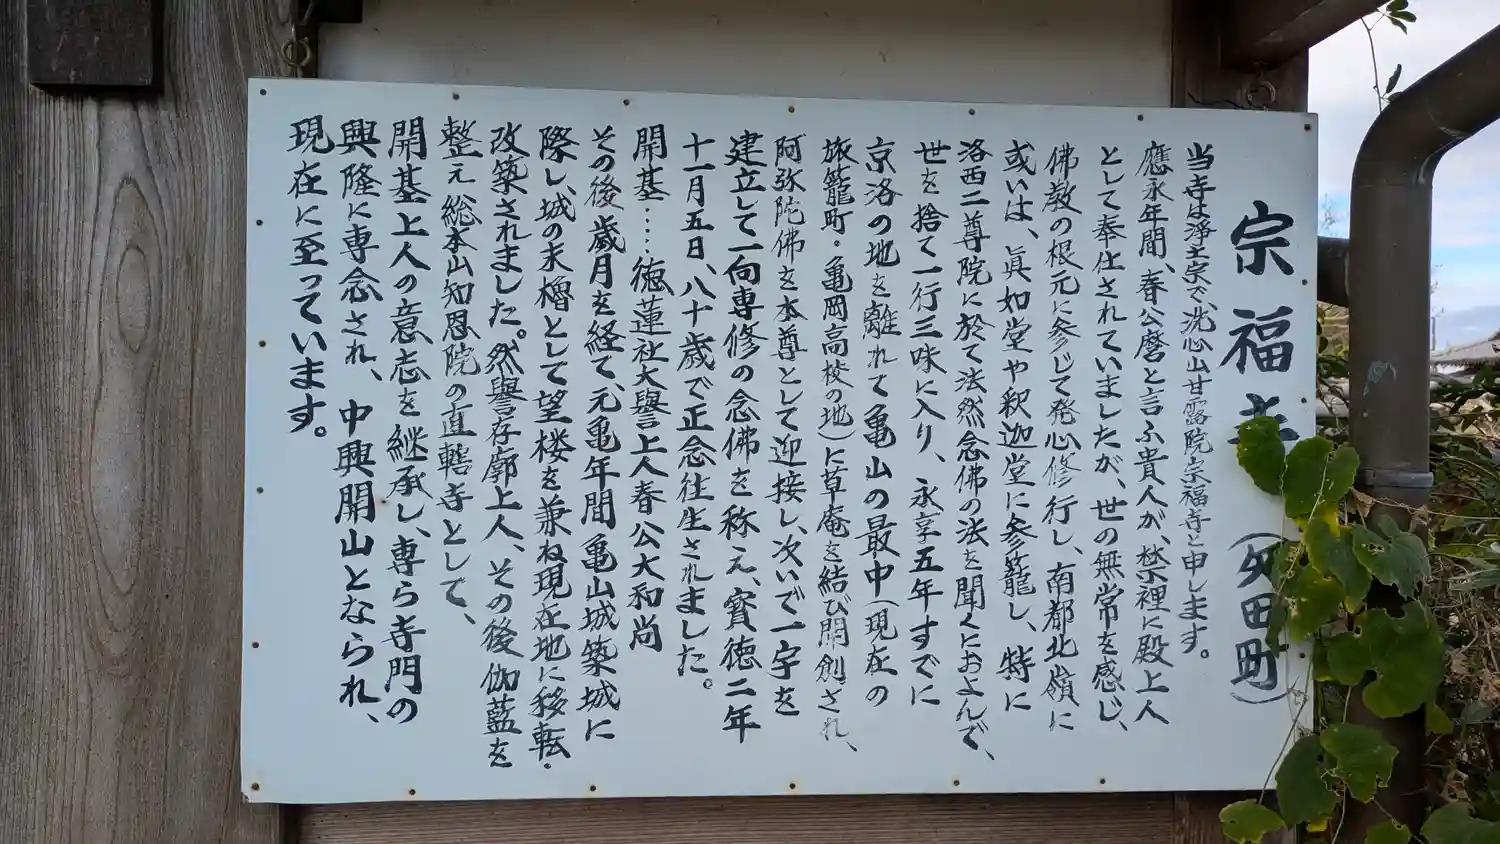 宗福寺 (矢田町)
当寺は浄土宗で、洗心山甘露院宗福寺と申します。
應永年間、春公麿と言ふ貴人が、禁裡に殿上人
として奉仕されていましたが、世の無常を感じ、
佛教の根元に参じて発心修行し、南都北嶺に
或いは、眞如堂や釈迦堂に参籠し、特に
洛西二尊院に於て法然念佛の法を聞くにおよんで、
世を捨て一行三昧に入り、永享五年すでに
京洛の地を離れて亀山の最中(現在の
旅籠町・亀岡高校の地)に草庵を結び開創され、
阿弥陀佛を本尊として迎接し、次いで一宇を
建立して一向専修の念佛を称え、寶徳二年
十一月五日、八十歳で正念往生されました。
開基……徳蓮社大譽上人春公大和尚
その後歳月を経て、元亀年間亀山城築城に
際し、城の末櫓として望楼を兼ね現在地に移転・
改築されました。然譽存廓上人、その後伽藍を
整え総本山知恩院の直轄寺として、
開基上人の意志を継承し、専ら寺門の
興隆に専念され、中興開山となられ、
現在に至っています。